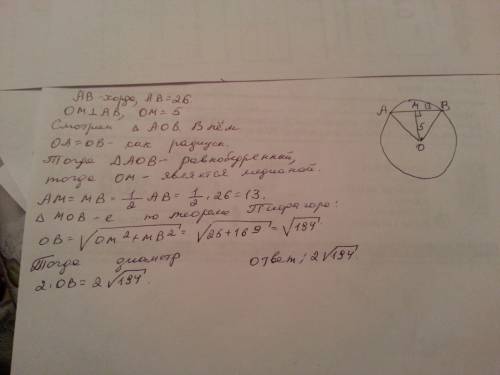 AB-хорда, AB=26.
OM⊥AB, OM=5
Смотрим △ AOB. В нём
OA=OB - как радиусы.
Тогда △AOB- равнобедренный,
тогда OM- является медианой.
AM=MB=1/2 AB=1/2·26=13.
△ MOB-е по теореме Пифагора:
OB=√OM²+MB²=√25+169=√194
Тогда диаметр
2·OB=2√194.
Ответ: 2√194
A M B
5
O